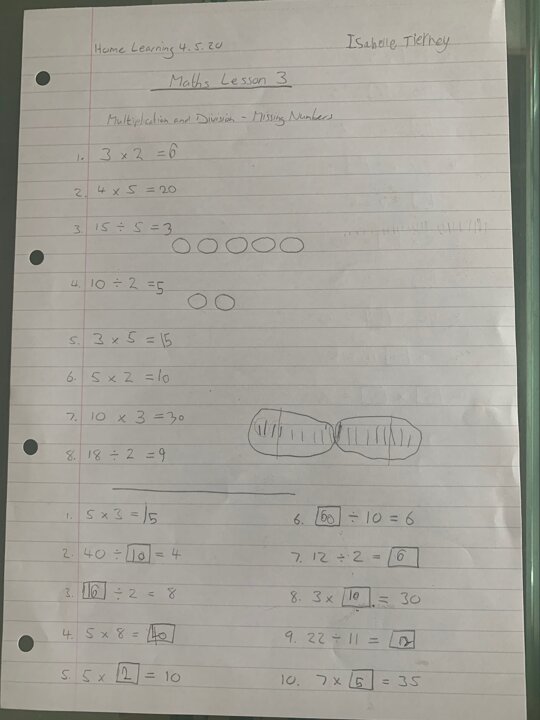 Home Learning 4.5.20
Isabelle Tierney
Maths Lesson 3
Multiplication and Division - Missing Numbers
1. 3 × 2 = 6
2. 4 × 5 = 20
3. 15 ÷ 5 = 3
4. 10 ÷ 2 = 5
5. 3 × 5 = 15
6. 5 × 2 = 10
7. 10 × 3 = 30
8. 18 ÷ 2 = 9
1. 5 × 3 = 15
2. 40 ÷ 10 = 4
3. 16 ÷ 2 = 8
4. 5 × 8 = 40
5. 5 × 2 = 10
6. 60 ÷ 10 = 6
7. 12 ÷ 2 = 6
8. 3 × 10 = 30
9. 22 ÷ 11 =
10. 7 × 5 = 35